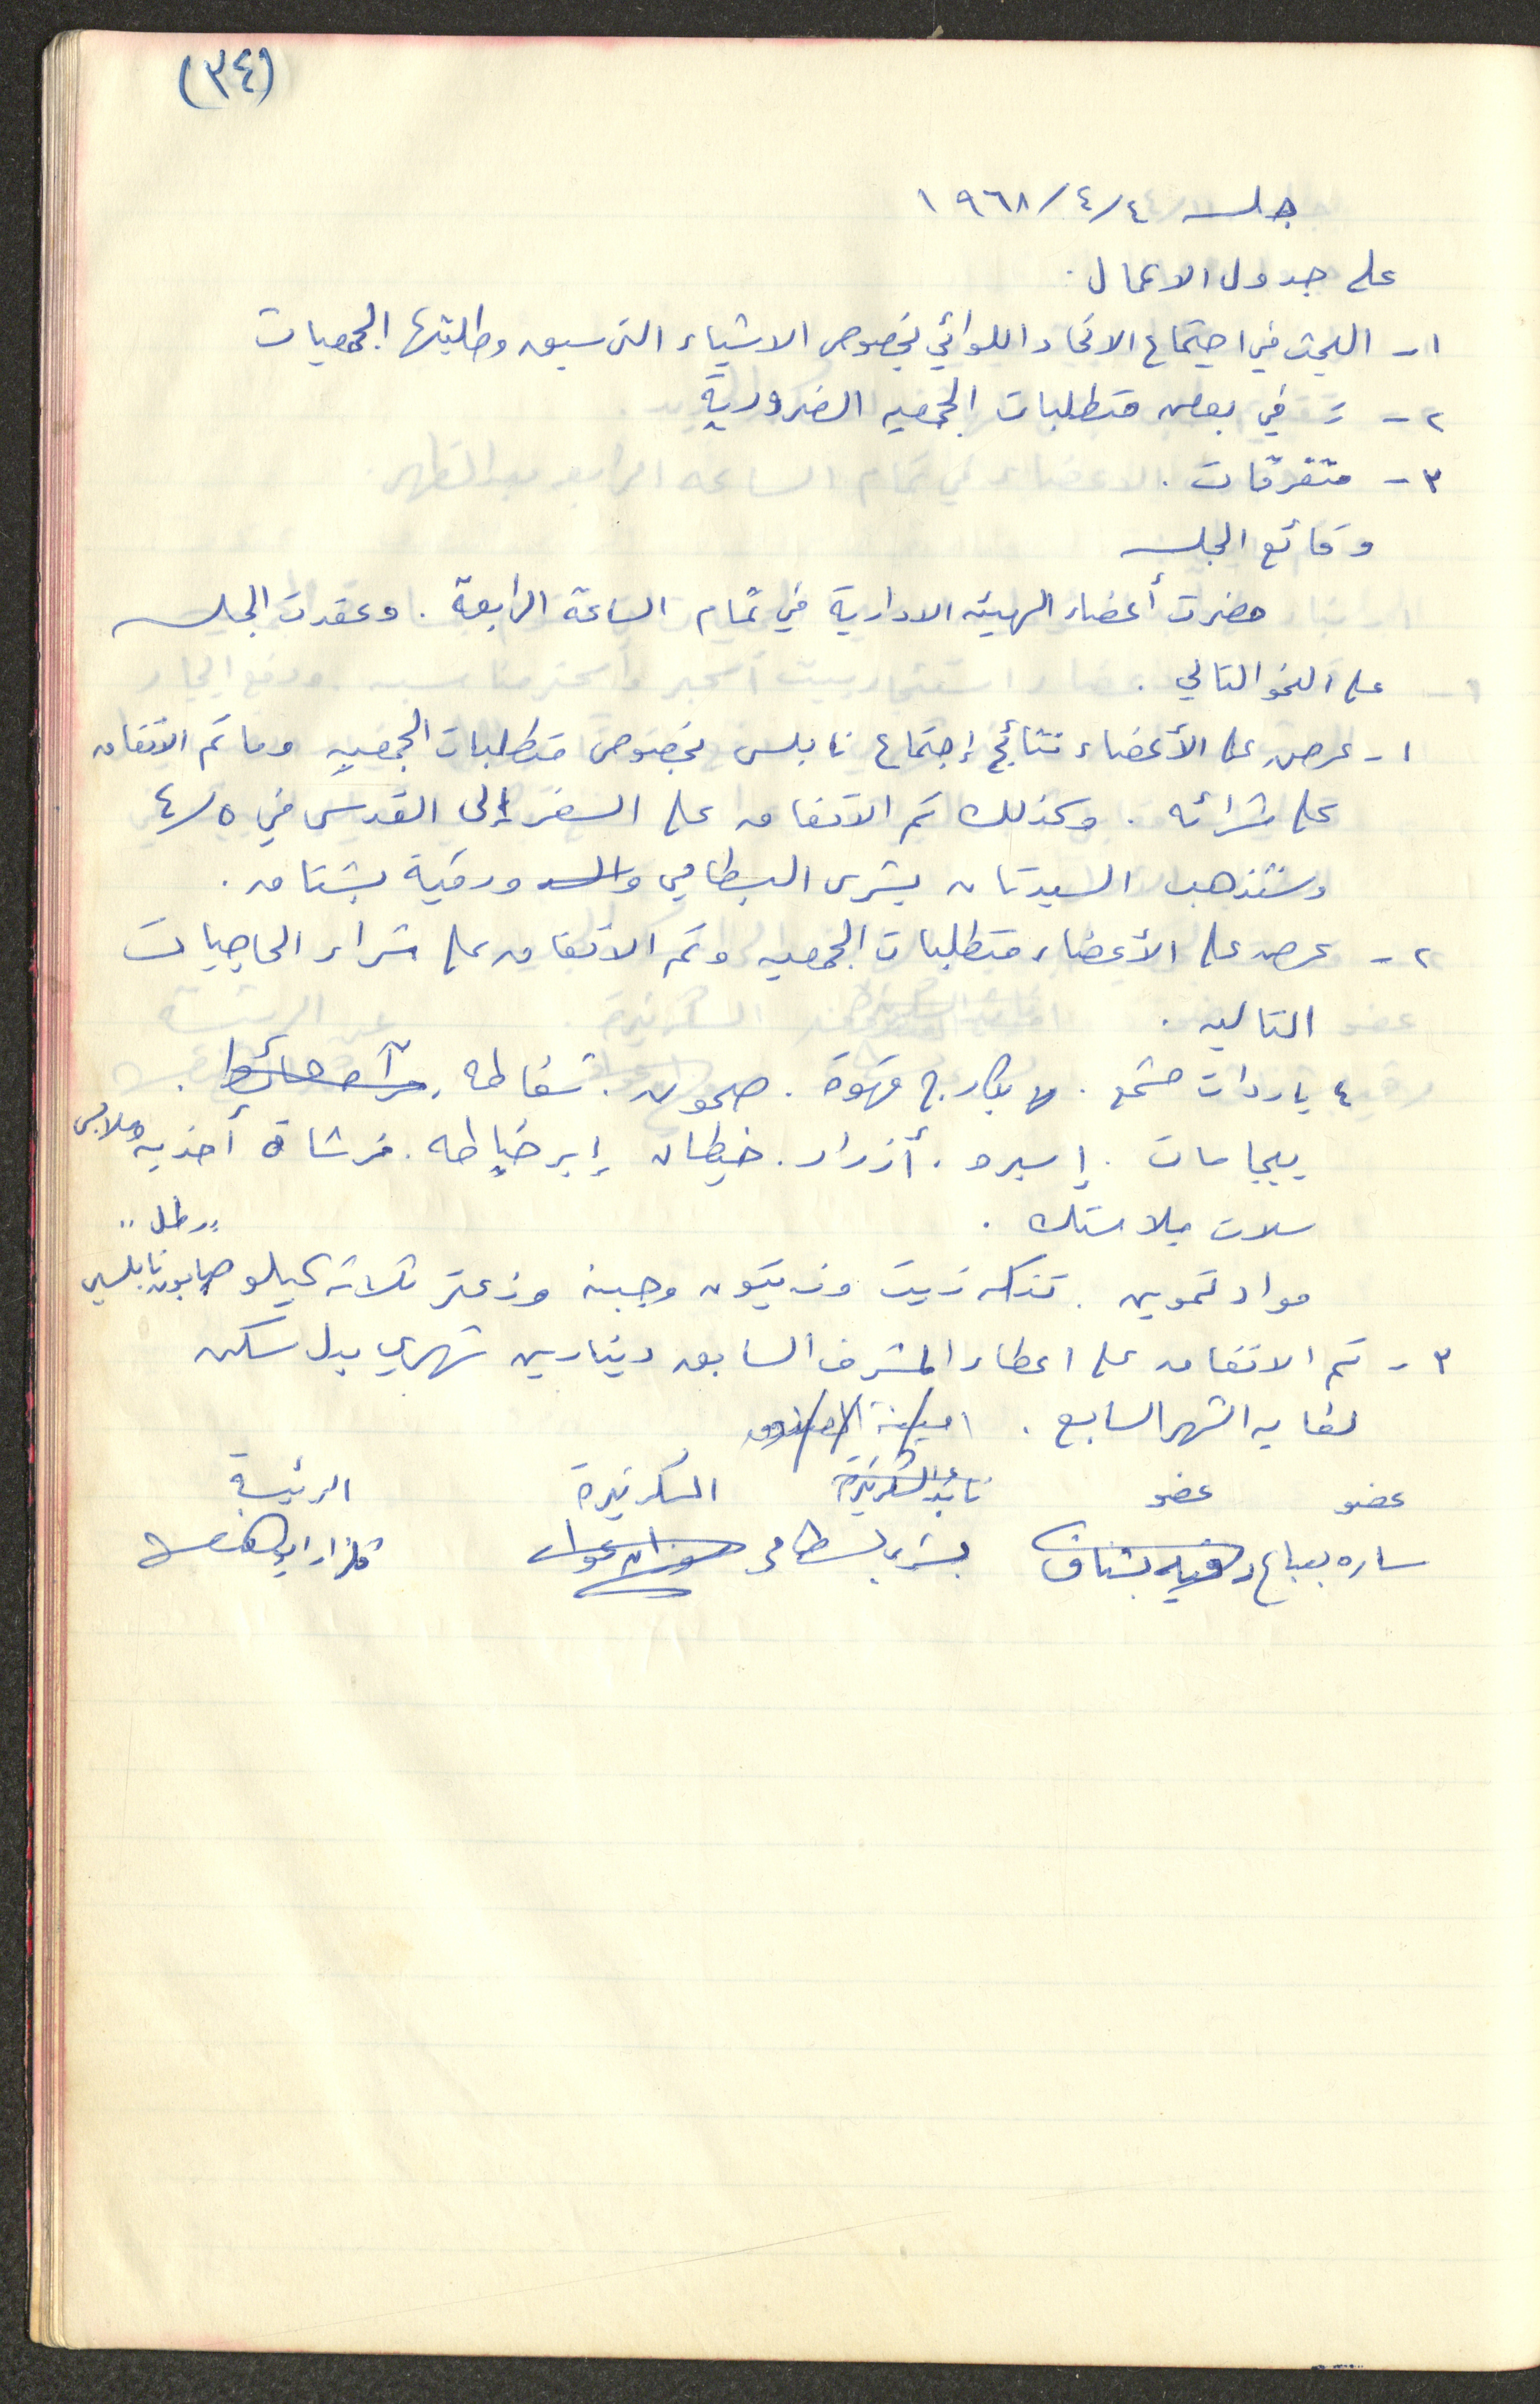 (٣٤)
جلسه ٤/٤/١٩٦٨
على جدول الاعمال.
١- البحث في اجتماع الاتحاد اللوائي بخصوص الاشياء التي سبق وطلبتها الجمعيات
٢- = في بعض متطلبات الجمعيه الضرورية
٣- متفرقات.
وقائع الجلسه
حضرت أعضاء الهيئه الادارية في تمام الساعة الرابعة. وعقدت الجلسه
على النحو التالي.
١- عرض على الأعضاء نتائج إجتماع نابلس بخصوص متطلبات الجمعيه وما تم الاتفاق
على شرائه. وكذلك تم الاتفاق على السفر إلى القدس في ٤/٥
وستذهب السيدتان بشرى البسطامي ورقية بشتاق.
٢- عرض على الأعضاء متطلبات الجمعيه وتم الاتفاق على شراء الحاجيات
التاليه.
٤ ياردات مشمع. بكارج قهوة. صحون. شفاطه.
بيجامات. إسبرو. أزرار. خيطان إبر خياطه. فرشاة أحذيه وملابس
سلات بلاستك.
مواد تموين. تنكه زيت وزيتون وجبنه وزعتر ثلاثه كيلو صابون نابلسي "رطل"
٣- تم الاتفاق على اعطاء المشرف السابق دينارين شهري بدل سكن
لغايه الشهر السابع.
عضو عضو السكرتيرة الرئيسة
ساره بعباع رقيه بشتاق بشرى بسطامي